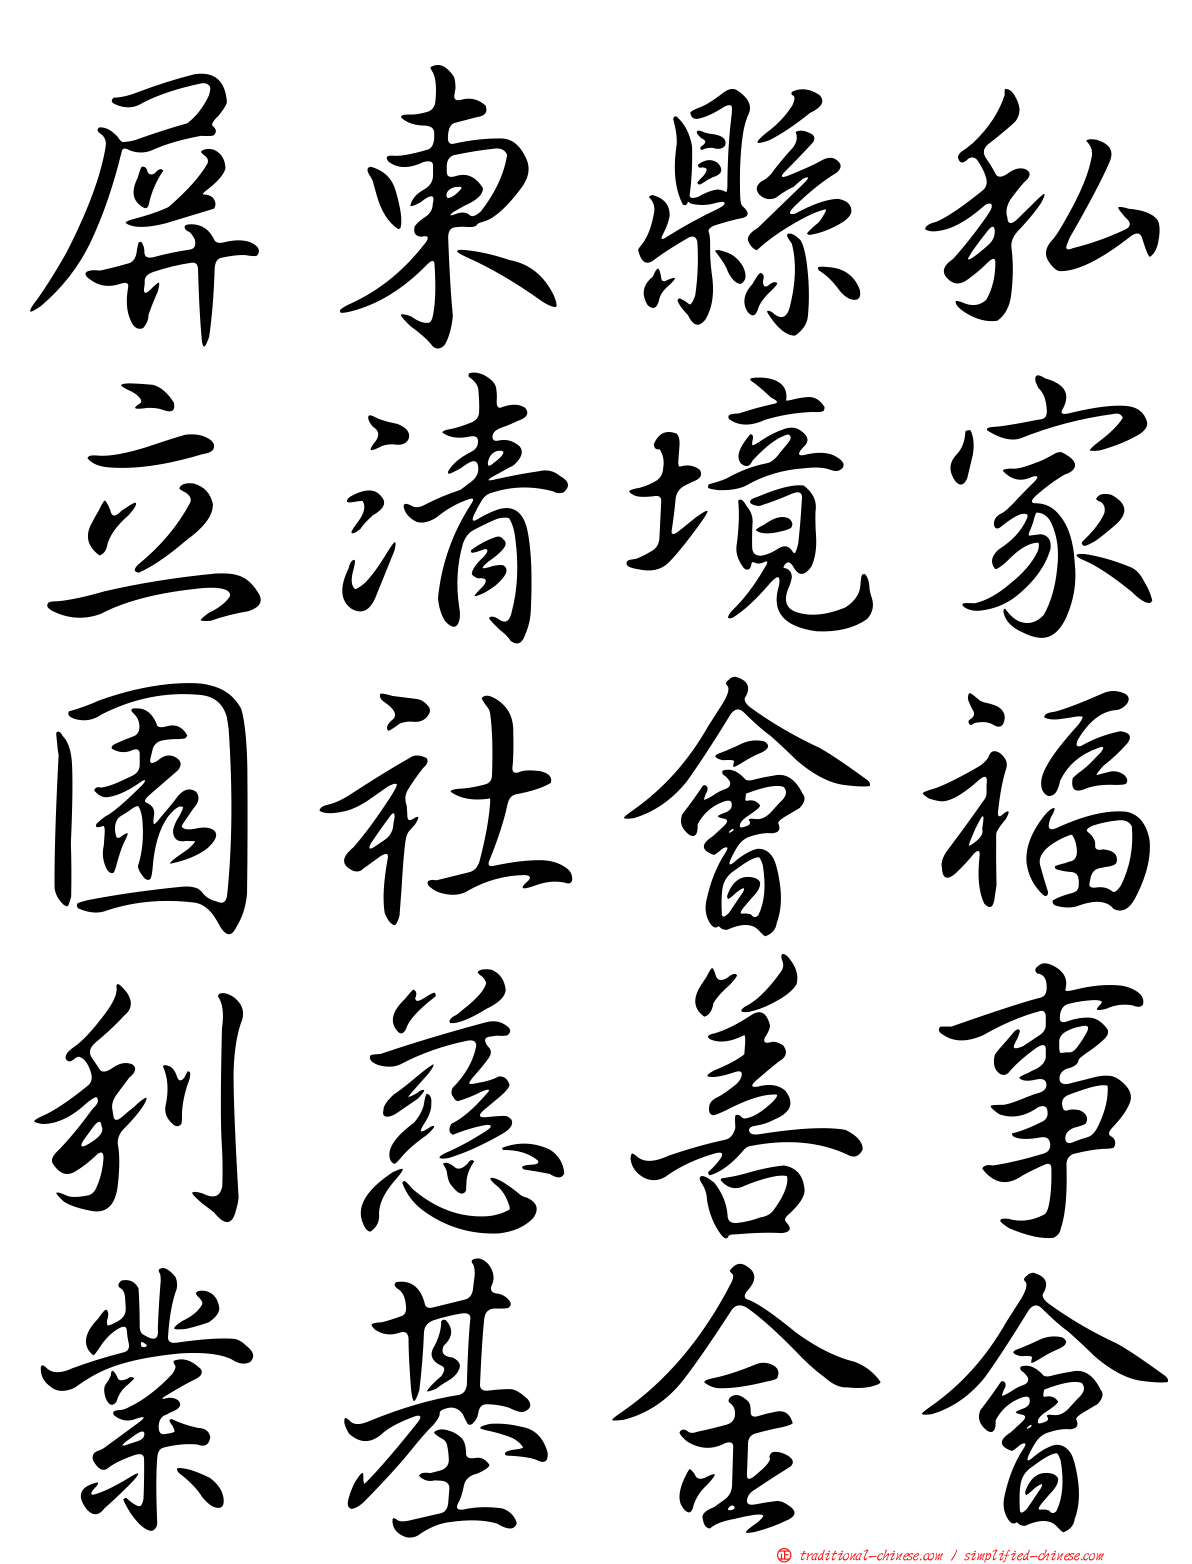 屏東縣私
立清境家
園社會福
利慈善事
業基金會
正 traditional-chinese.com / simplified-chinese.com